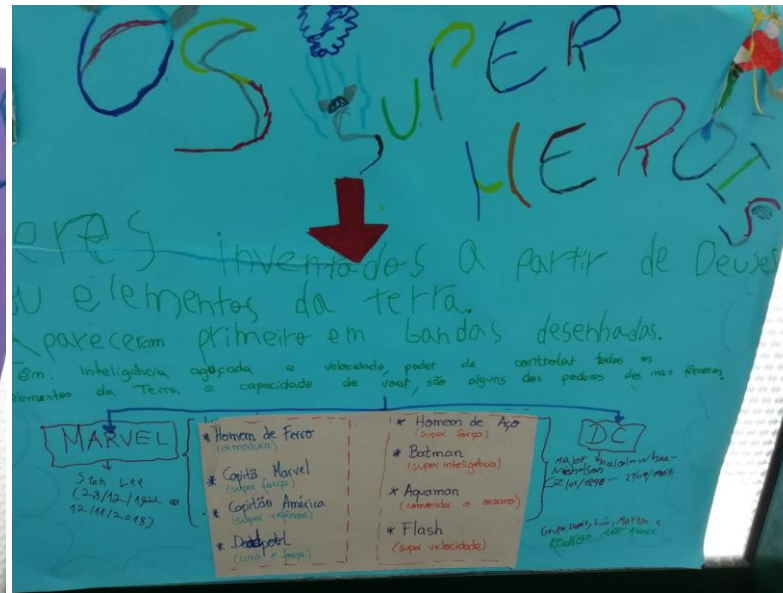 OS SUPER
HERÓIS
eres inventados a partir de Deuses
ou elementos da terra.
Apareceram primeiro em bandas desenhadas.
Têm inteligência aguçada e velocidade, poder de controlar todos os
elementos da Terra e capacidade de voar, são alguns dos poderes dos mais famosos.
MARVEL
Stan Lee
(28/12/1922
12/11/2018)
* Homem de Ferro
(armadura)
* Capitã Marvel
(super força)
* Capitão América
(super reflexos)
* Deadpool
(cura e força)
* Homem de Aço
(super força)
* Batman
(super inteligência)
* Aquaman
(comandar o oceano)
* Flash
(super velocidade)
DC
Major Malcolm
Nicholson
Grupo Luís, Martim e
Rodrigo